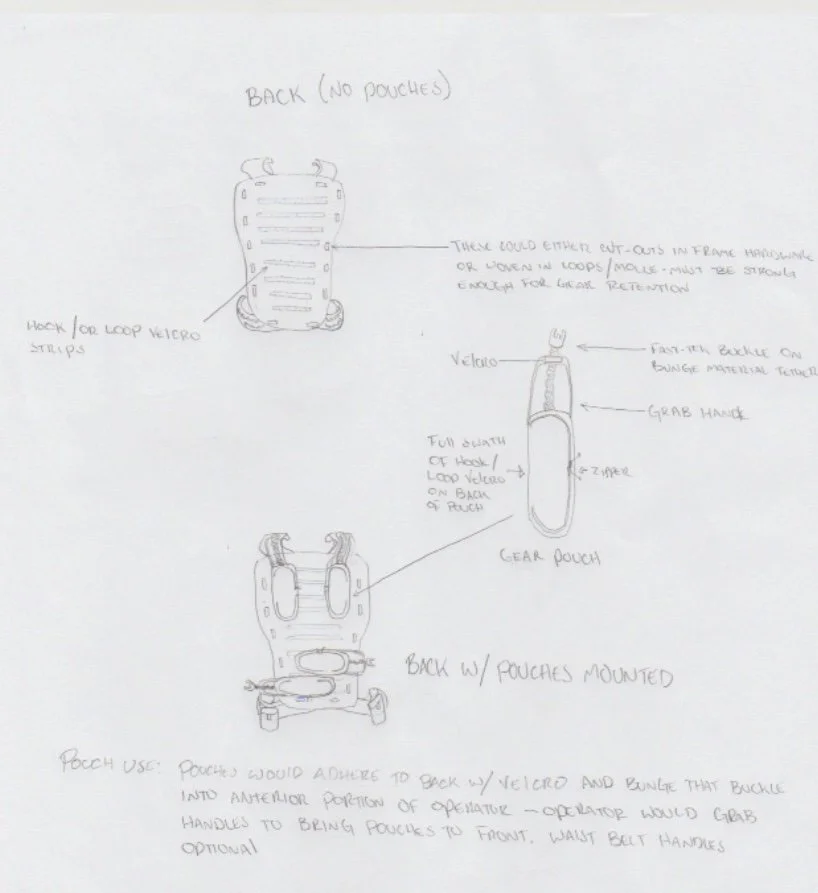 BACK (NO POUCHES)
THESE COULD EITHER CUT-OUTS IN FRAME HARDWARE
OR WOVEN IN LOOPS/MOLLE - MUST BE STRONG
ENOUGH FOR GEAR RETENTION
HOOK/OR LOOP VELCRO
STRIPS
VELCRO
FAST-TEK BUCKLE ON
BUNGE MATERIAL TETHER
GRAB HANDLE
FULL SWATH
OF HOOK/
LOOP VELCRO
ON BACK
OF POUCH
ZIPPER
GEAR POUCH
BACK W/ POUCHES MOUNTED
POUCH USE: POUCHES WOULD ADHERE TO BACK W/ VELCRO AND BUNGE THAT BUCKLE
INTO ANTERIOR PORTION OF OPERATOR - OPERATOR WOULD GRAB
HANDLES TO BRING POUCHES TO FRONT. WAIST BELT HANDLES
OPTIONAL